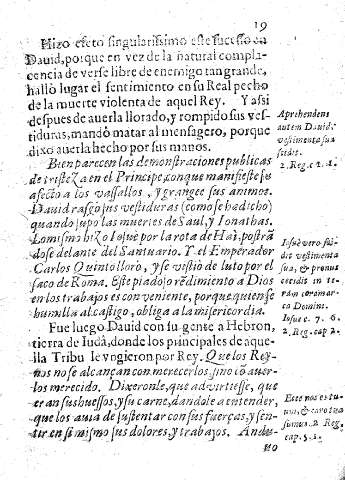 19
Hizo efeto singularissimo este sucesso en
Dauid, porque en vez de la natural compla-
cencia de verse libre de enemigo tan grande,
hallò lugar el sentimiento en su Real pecho
de la muerte violenta de aquel Rey. Y assi
despues de auerla llorado, y rompido sus ves-
tiduras, mandò matar al mensagero, porque
dixo auerla hecho por sus manos.
Bien parecen las demonstraciones publicas
de tristeza en el Principe, con que manifieste su
afecto a los vassallos, y grangee sus animos.
Dauid rasgò sus vestiduras (como se ha dicho)
quando supo las muertes de Saul, y Ionathas.
Lo mismo hizo Iosue por la rota de Haì, postrã
dose delante del Santuario. Y el Emperador
Carlos Quinto llorò, y se vistio de luto por el
saco de Roma. Este piadoso rẽdimiento a Dios
en los trabajos es conueniente, porque quien se
humilla al castigo, obliga a la misericordia.
Fue luego Dauid con su gente a Hebron,
tierra de Iudà, donde los principales de aque-
lla Tribu le vogieron por Rey. Que los Rey-
nos no se alcançan con merecerlos, sino cõ auer-
los merecido. Dixeronle, que aduirtiesse, que
eran sus huessos, y su carne, dandole a entender,
que los auia de sustentar con sus fuerças, y sen-
tir en si mismo sus dolores, y trabajos. Andu-
uo
Aprehendens
autem Dauid
vestimenta sua
scidit.
2. Reg. c. 1.
Iosue vero sci-
dit vestimenta
sua, & pronus
cecidit in ter-
ram coram ar-
ca Domini.
Iosue c. 7. 6.
2. Reg. cap. 2.
Ecce nos os tu-
um, & caro tua
sumus. 2. Reg.
cap. 5. 1.